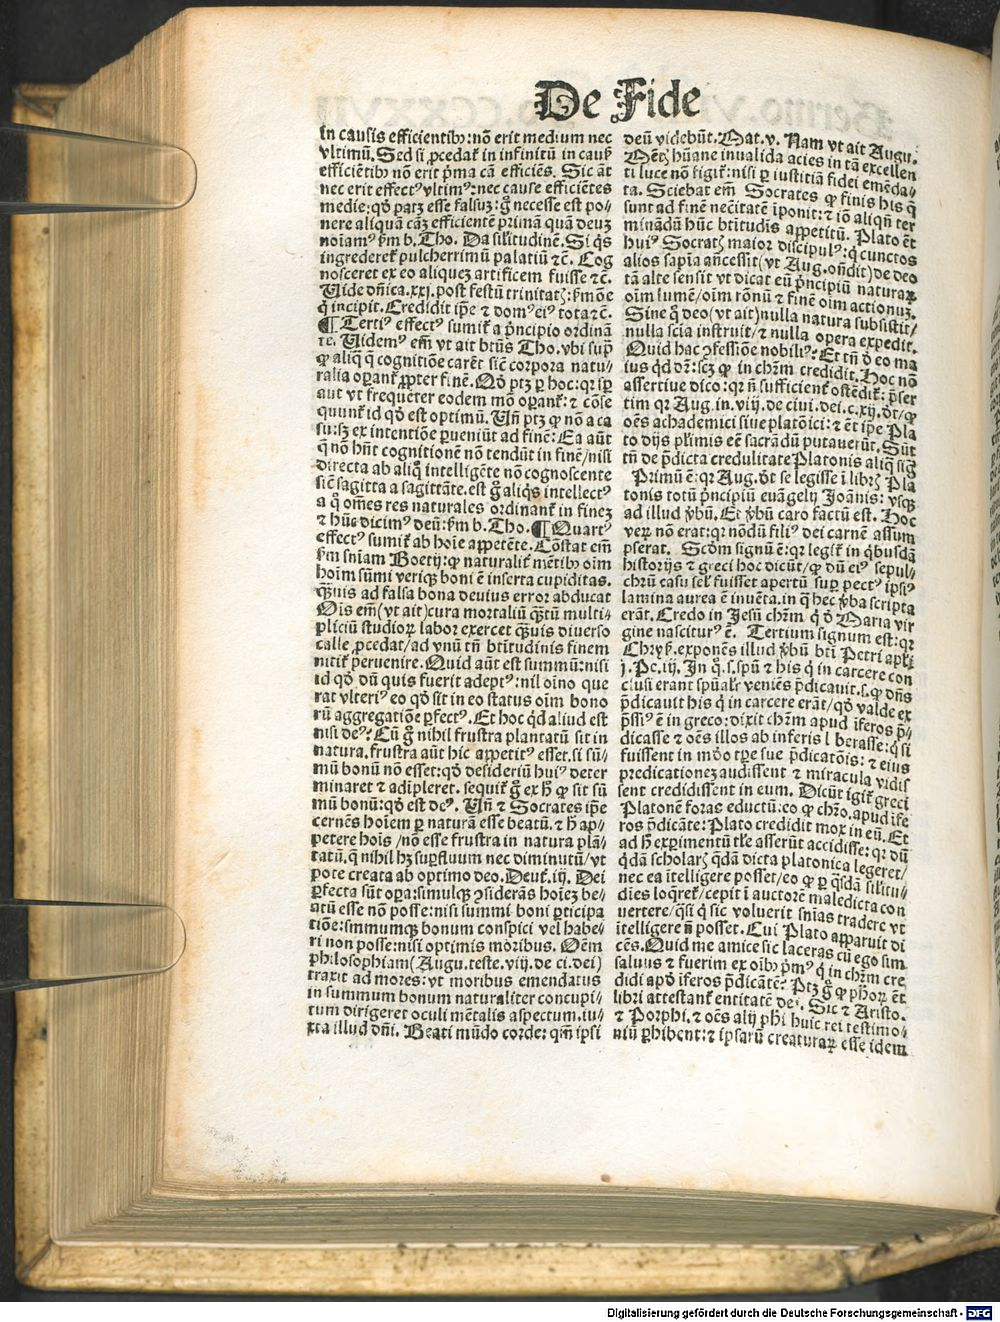 De Fide
in causis efficientibꝰ: nō erit medium nec
vltimū. Sed si ꝓcedat̄ in infinitū in causꝭ
efficiētibꝰ nō erit pͥma cā efficiēs. Sic āt
nec erit effectꝰ vltimꝰ: nec cause efficiētes
medie: qd̄ patꝫ esse falsuꝫ: g̊ necesse est po⸗
nere aliquā cāꝫ efficientē primā quā deuꝫ
noīamꝰ ẜm b. Tho. Da silitudinē. Si q̇s
ingrederet̄ pulcherrimū palatiū ⁊c̄. Cog
nosceret ex eo aliqueꝫ artificem fuisse ⁊c̄.
Uide dn̄ica. xxj. post festū trinitatꝭ: ẜmōe
q̇ incipit. Credidit ip̄e ⁊ domꝰ eiꝰ tota ⁊c̄.
¶ Tertiꝰ effectꝰ sumit̄ a pͥncipio ordinā
te. Uidemꝰ em̄ vt ait btūs Tho. vbi supͣ
ꝙ aliq̄ q̄ cognitiōe carēt sic̄ corpora natu⸗
ralia oꝑant̄ ꝓpter finē. Qd̄ ptꝫ ꝑ hoc: qꝛ sꝑ
aut vt frequēter eodem mō oꝑant̄: ⁊ cōse
quunt̄ id qd̄ est optimū. Un̄ ptꝫ ꝙ nō a ca
su: sꝫ ex intentiōe ꝑueniūt ad finē: Ea aūt
q̄ nō hn̄t cognitionē nō tendūt in finē/ nisi
directa ab aliq̊ intelligēte nō cognoscente
sic̄ sagitta a sagittāte. est g̊ aliq̇s intellectꝰ
a q̊ om̄es res naturales ordinant̄ in fineꝫ
⁊ hūc dicimꝰ deū: ẜm b. Tho. ¶ Quartꝰ
effectꝰ sumit̄ ab hoīe appetēte. Cōstat em̄
ẜm sn̄iam Boetij: ꝙ naturalit̄ mētibꝰ oīm
hoīm sūmi veriqꝫ boni ē inserta cupiditas.
Quis ad falsa bona deuius error abducat
Oīs em̄ (vt ait) cura mortaliū quātū multi⸗
pliciū studioꝝ labor exercet quis diuerso
calle ꝓcedat/ ad vnū tn̄ btītudinis finem
nitit̄ peruenire. Quid aūt est summū: nisi
id qd̄ dū quis fuerit adeptꝰ: nil oīno que
rat vlteriꝰ eo qd̄ sit in eo status oīm bono
rū aggregatiōe ꝑfectꝰ. Et hoc qd̄ aliud est
nisi deꝰ? Cū g̊ nihil frustra plantatū sit in
natura. frustra aūt hic appetitꝰ esset. si sū⸗
mū bonū nō esset: qd̄ desideriū huiꝰ deter
minaret ⁊ adīpleret. sequit̄ g̊ ex hͦ ꝙ sit sū
mū bonū: qd̄ est deꝰ. Un̄ ⁊ Socrates ip̄e
cernēs hoīem ꝑ naturā esse beatū. ⁊ hͦ ap⸗
petere hoīs/ nō esse frustra in natura plā⸗
tatū. q̄ nihil hꝫ suꝑfluum nec diminutū/ vt
pote creata ab optimo deo. Deut̄. iij. Dei
ꝑfecta sūt oꝑa: simulqꝫ ↄsiderās hoīeꝫ be⸗
atū esse nō posse: nisi summi boni ꝑticipa
tiōe: summumqꝫ bonum conspici vel habe⸗
ri non posse: nisi optimis moribus. Oēm
philosophiam (Augu. teste. viij. de ci. dei)
traxit ad mores: vt moribus emendatus
in summum bonum naturaliter concupi⸗
tum dirigeret oculi mētalis aspectum. iu⸗
xta illud dn̄i. Beati mūdo corde: qm̄ ipsi
deū videbūt. Mat. v. Nam vt ait Augu.
Mētꝭ hūane inualida acies in tā excellen
ti luce nō figit̄: nisi ꝑ iustitiā fidei emēda⸗
ta. Sciebat em̄ Socrates ꝙ finis his q̄
sunt ad finē necitatē īponit: ⁊ iō aliqn̄ ter
minādū hūc btītudis appetitū. Plato ēt
huiꝰ Socratꝭ maior discipulꝰ: q̇ cunctos
alios sapīa ancessit (vt Aug. on̄dit) de deo
tā alte sensit vt dicat eū pͥncipiū naturaꝝ
oīm lumē/ oīm rōnū ⁊ finē oīm actionuꝫ.
Sine q̊ deo (vt ait) nulla natura subsistit/
nulla scīa instruit/ ⁊ nulla opera expedit.
Quid hac ↄfessiōe nobiliꝰ? Et tn̄ de eo ma
ius qd̄ dꝛ: scꝫ ꝙ in chr̄m credidit. Hoc nō
assertiue dico: qꝛ n̄ sufficient̄ ostēdit̄: p̄ser
tim qꝛ Aug. in. viij. de ciui. dei. c. xij. dt̄/ ꝙ
oēs achademici siue platoīci: ⁊ ēt ip̄e Pla
to dijs plimis eē sacrādū putauerūt. Sūt
tn̄ de p̄dicta credulitate Platonis aliq̄ siḡ
Primū ē: qꝛ Aug. dt̄ se legisse ī librꝭ Pla
tonis totū pͥncipiū euāgelij Joānis: vsqꝫ
ad illud vͦbū. Et vͦbū caro factū est. Hoc
veꝝ nō erat: qꝛ nōdū filiꝰ dei carnē assum
pserat. Scd̄m signū ē: qꝛ legit̄ in q̇busdā
historijs ⁊ greci hoc dicūt/ ꝙ dū eiꝰ sepul⸗
chrū casu sel̄ fuisset apertū suꝑ pectꝰ ipsiꝰ
lamina aurea ē inuēta. in q̄ hec vͦba scripta
erāt. Credo in Jesū chr̄m q̇ de Maria vir
gine nascitur ꝰ ē. Tertium signum est: qꝛ
Chryẜ. exponēs illud vͦbū bt̄i Petri apl̄i
j. Pe. iij. In q̊. s. spū ⁊ his q̇ in carcere con
clusi erant spūalr̄ veniēs p̄dicauit. s. ꝙ dn̄s
p̄dicauit his q̇ in carcere erāt/ qd̄ valde ex
pͥssiꝰ ē in greco: dixit chr̄m apud īferos p̄⸗
dicasse ⁊ oēs illos ab inferis liberasse: q̇ si
fuissent in mōo tꝑe sue p̄dicatōis: ⁊ eius
predicationeꝫ audissent ⁊ miracula vidis
sent credidissent in eum. Dicūt igit̄ greci
Platonē foras eductū: eo ꝙ chr̄o. apud īfe
ros p̄dicāte: Plato credidit mox in eū. Et
ad hͦ exꝑimentū tle asserūt accidisse: qꝛ dū
q̇dā scholarꝭ q̄dā dicta platonica legeret/
nec ea ītelligere posset/ eo ꝙ ꝑ q̄sdā silitu⸗
dīes loq̄ret̄/ cepit ī auctorē maledicta con
uertere/ q̄si q̇ sic voluerit sn̄ias tradere vt
ītelligere n̄ posset. Cui Plato apparuit di
cēs. Quid me amice sic laceras cū ego sim
saluus ⁊ fuerim ex oībꝰ pͥmꝰ q̇ in chr̄m cre
didi apd̄ īferos p̄dicātē? Ptꝫ g̊ ꝙ ph̄oꝝ ēt
libri attestant̄ entitatē deꝰ. Sic ⁊ Aristo.
⁊ Porphi. ⁊ oēs alij ph̄i huic rei testimo⸗
niū ꝑhibent: ⁊ ipsarū creaturaꝝ esse idem
Digitalisierung gefördert durch die Deutsche Forschungsgemeinschaft - DFG